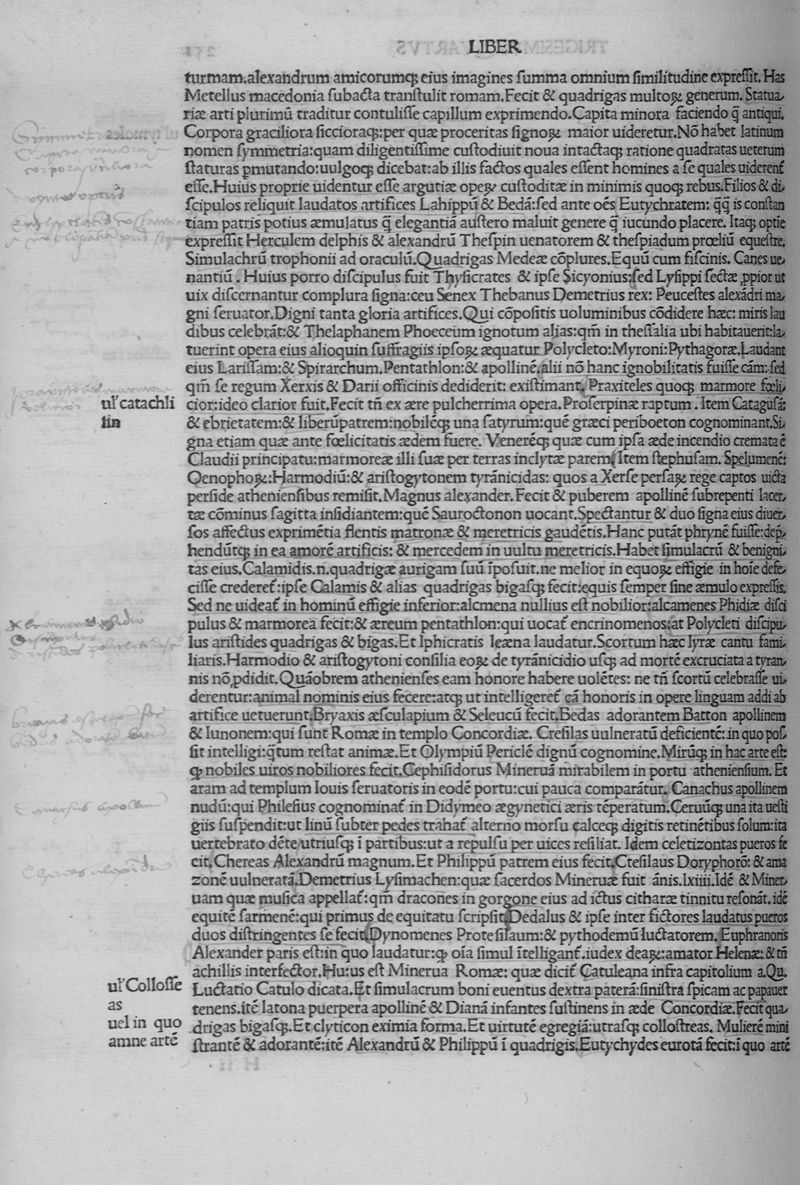 LIBER
turmam.alexandrum amicorumq; eius imagines ſumma omnium ſimilitudine expreſſit. Has
Metellus macedonia ſubacta tranſtulit romam.Fecit & quadrigas multoꝝ generum. Statua/
riæ arti plurimū traditur contuliſſe capillum exprimendo.Capita minora faciendo q̄ antiqui.
Corpora graciliora ſiccioraq;:per quæ proceritas ſignoꝝ maior uideretur.Nō habet latinum
nomen ſymmetria:quam diligentiſſime cuſtodiuit noua intactaq; ratione quadratas ueterum
ſtaturas pmutando:uulgoq; dicebat:ab illis factos quales eſſent homines a ſe quales uiderent̃
eſſe.Huius proprie uidentur eſſe argutiæ opeꝝ cuſtoditæ in minimis quoq; rebus.Filios & di/
ſcipulos reliquit laudatos artifices Lahippū & Bedā:ſed ante oēs Eutychratem: q̄q̄ is conſtan
tiam patris potius æmulatus q̄ elegantiā auſtero maluit genere q̄ iucundo placere. Itaq; optie
expreſſit Herculem delphis & alexandrū Theſpin uenatorem & theſpiadum prœliū equeſtre.
Simulachrū trophonii ad oraculū.Quadrigas Medeæ cōplures.Equū cum fiſcinis. Canes ue/
nantiū . Huius porro diſcipulus fuit Thyſicrates & ipſe Sicyonius:ſed Lyſippi ſectæ ,ppior ut
uix diſcernantur complura ſigna:ceu Senex Thebanus Demetrius rex: Peuceſtes alexādri ma/
gni ſeruator.Digni tanta gloria artifices.Qui cōpoſitis uoluminibus cōdidere hæc: miris lau
dibus celebrāt:& Thelaphanem Phoeceum ignotum alias:qm̄ in theſſalia ubi habitauerit:la/
tuerint opera eius alioquin ſuffragiis ipſoꝝ æquatur Polycleto:Myroni:Pythagoræ.Laudant
eius Lariſſam:& Spirarchum.Pentathlon:& apollinē.alii nō hanc ignobilitatis fuiſſe cām:ſed
qm̄ ſe regum Xerxis & Darii officinis dediderit: exiſtimant. Praxiteles quoq; marmore fœli/
ul̓ catachli
lin
cior:ideo clarior fuit.Fecit tn̄ ex ære pulcherrima opera.Proſerpinæ raptum . Item Cataguſā:
& ebrietatem:& liberūpatrem:nobilēq; una ſatyrum:quē græci periboeton cognominant.Si/
gna etiam quæ ante fœlicitatis ædem fuere. Venerēq; quæ cum ipſa æde incendio cremata ē
Claudii principatu:marmoreæ illi ſuæ per terras inclytæ parem.Item ſtephuſam. Spelumenē:
Oenophoꝝ:Harmodiū:& ariſtogytonem tyrānicidas: quos a Xerſe perſaꝝ rege captos uicta
perſide athenienſibus remiſit.Magnus alexander.Fecit & puberem apollinē ſubrepenti lacer/
tæ cōminus ſagitta inſidiantem:quē Sauroctonon uocant.Spectantur & duo ſigna eius diuer/
ſos affectus exprimētia flentis matronæ & meretricis gaudētis.Hanc putāt phrynē fuiſſe:dep/
hendūtq; in ea amorē artificis: & mercedem in uultu meretricis.Habet ſimulacrū & benigni/
tas eius.Calamidis.n.quadrigæ aurigam ſuū īpoſuit.ne melior in equoꝝ effigie in hoīe defe/
ciſſe crederet̃:ipſe Calamis & alias quadrigas bigaſq; fecit:equis ſemper ſine æmulo expreſſis.
Sed ne uideat̃ in hominū effigie inferior:alcmena nullius eſt nobilior:alcamenes Phidiæ diſci
pulus & marmorea fecit:& æreum pentathlon:qui uocat̃ encrinomenos:at Polycleti diſcipu/
lus ariſtides quadrigas & bigas.Et Iphicratis leæna laudatur.Scortum hæc lyræ cantu fami/
liaris.Harmodio & ariſtogytoni conſilia eoꝝ de tyrānicidio uſq; ad mortē excruciata a tyran/
nis nō,pdidit.Quāobrem athenienſes eam honore habere uolētes: ne tn̄ ſcortū celebraſſe ui/
derentur:animal nominis eius fecere:atq; ut intelligeret̃ cā honoris in opere linguam addi ab
artifice uetuerunt.Bryaxis æſculapium & Seleucū fecit.Bedas adorantem Batton apollinem
& Iunonem:qui ſunt Romæ in templo Concordiæ. Creſilas uulneratū deficientē: in quo poſ/
ſit intelligi:q̄tum reſtat animæ.Et Olympiū Periclē dignū cognomine.Mirūq; in hac arte eſt:
ꝙ nobiles uiros nobiliores fecit.Cephiſidorus Mineruā mirabilem in portu athenienſium. Et
aram ad templum Iouis ſeruatoris in eodē portu:cui pauca comparātur. Canachus apollinem
nudū:qui Phileſius cognominat̃ in Didymeo ægynetici æris tēperatum.Ceruūq; una ita ueſti
giis ſuſpendit:ut linū ſubter pedes trahat̃ alterno morſu calceq; digitis retinētibus ſolum:ita
uertebrato dēte utriuſq; ī partibus:ut a repulſu per uices reſiliat. Idem celetizontas pueros fe
cit.Chereas Alexandrū magnum.Et Philippū patrem eius fecit.Cteſilaus Doryphorō: & ama
zonē uulneratā.Demetrius Lyſimachen:quæ ſacerdos Mineruæ fuit ānis.lxiiii.Idē & Miner/
uam quæ muſica appellat̃:qm̄ dracones in gorgone eius ad ictus citharæ tinnitu reſonāt. idē
equitē ſarmenē:qui primus de equitatu ſcripſit.Dedalus & ipſe inter fictores laudatus pueros
duos diſtringentes ſe fecit.Dynomenes Proteſilaum:& pythodemū luctatorem. Euphranoris
Alexander paris eſt:in quo laudatur:ꝙ oīa ſimul ītelligant̃.iudex deaꝝ:amator Helenæ: & tn̄
achillis interfector.Hu:us eſt Minerua Romæ: quæ dicit̃ Catuleana infra capitolium a.Qu.
ul̓ Colloſſe
as
uel in quo
amne artē
Luctatio Catulo dicata.Et ſimulacrum boni euentus dextra paterā:ſiniſtra ſpicam ac papauer
tenens.itē latona puerpera apollinē & Dianā infantes ſuſtinens in æde Concordiæ.Fecit qua/
drigas bigaſq;.Et clyticon eximia forma.Et uirtutē egregiā:utraſq; colloſtreas. Mulierē mini
ſtrantē & adorantē:itē Alexandrū & Philippū ī quadrigis.Eutychydes eurotā fecit:ī quo artē